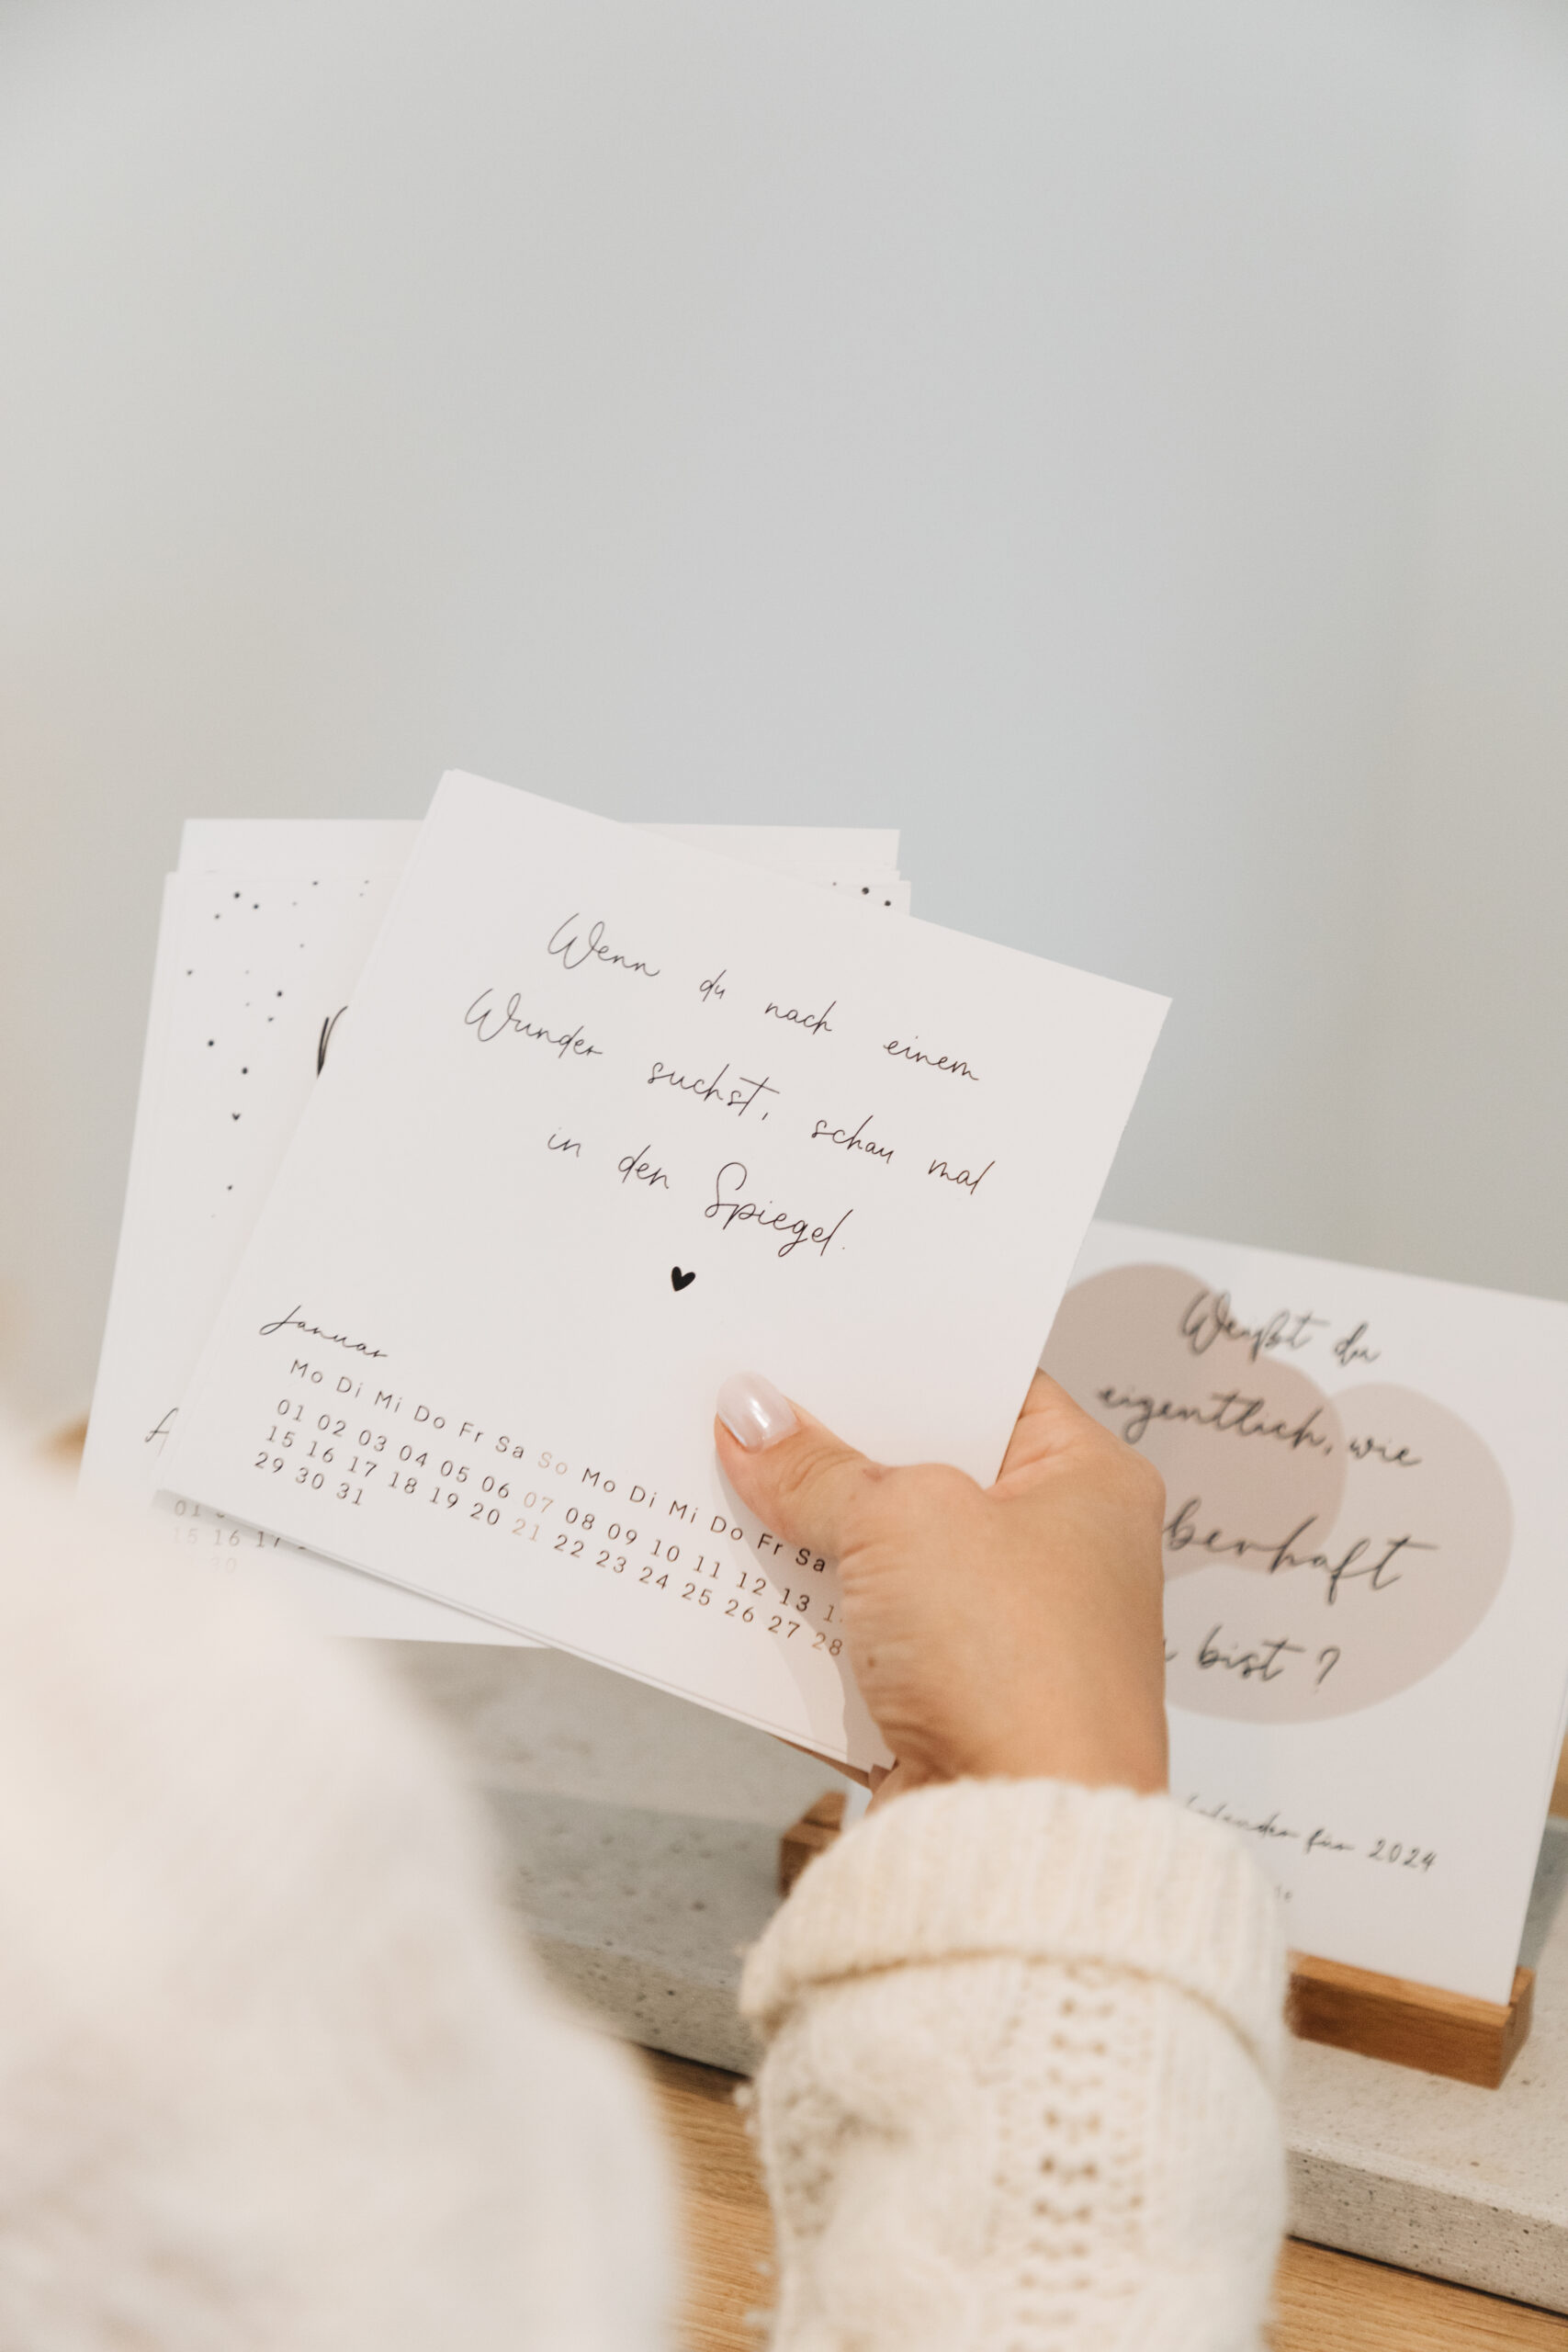 Wenn du nach einem
Wunder suchst, schau mal
in den Spiegel.
Januar
Mo Di Mi Do Fr Sa So Mo Di Mi Do Fr Sa
01 02 03 04 05 06 07 08 09 10 11 12 13
15 16 17 18 19 20 21 22 23 24 25 26 27 28
29 30 31
A
01
15 16 17
30
Weißt du
eigentlich, wie
berhaft
bist ?
für 2024